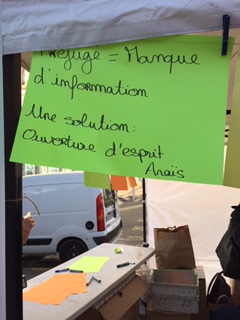 Préjugé = Manque
d'information
Une solution:
Ouverture d'esprit
Anaïs